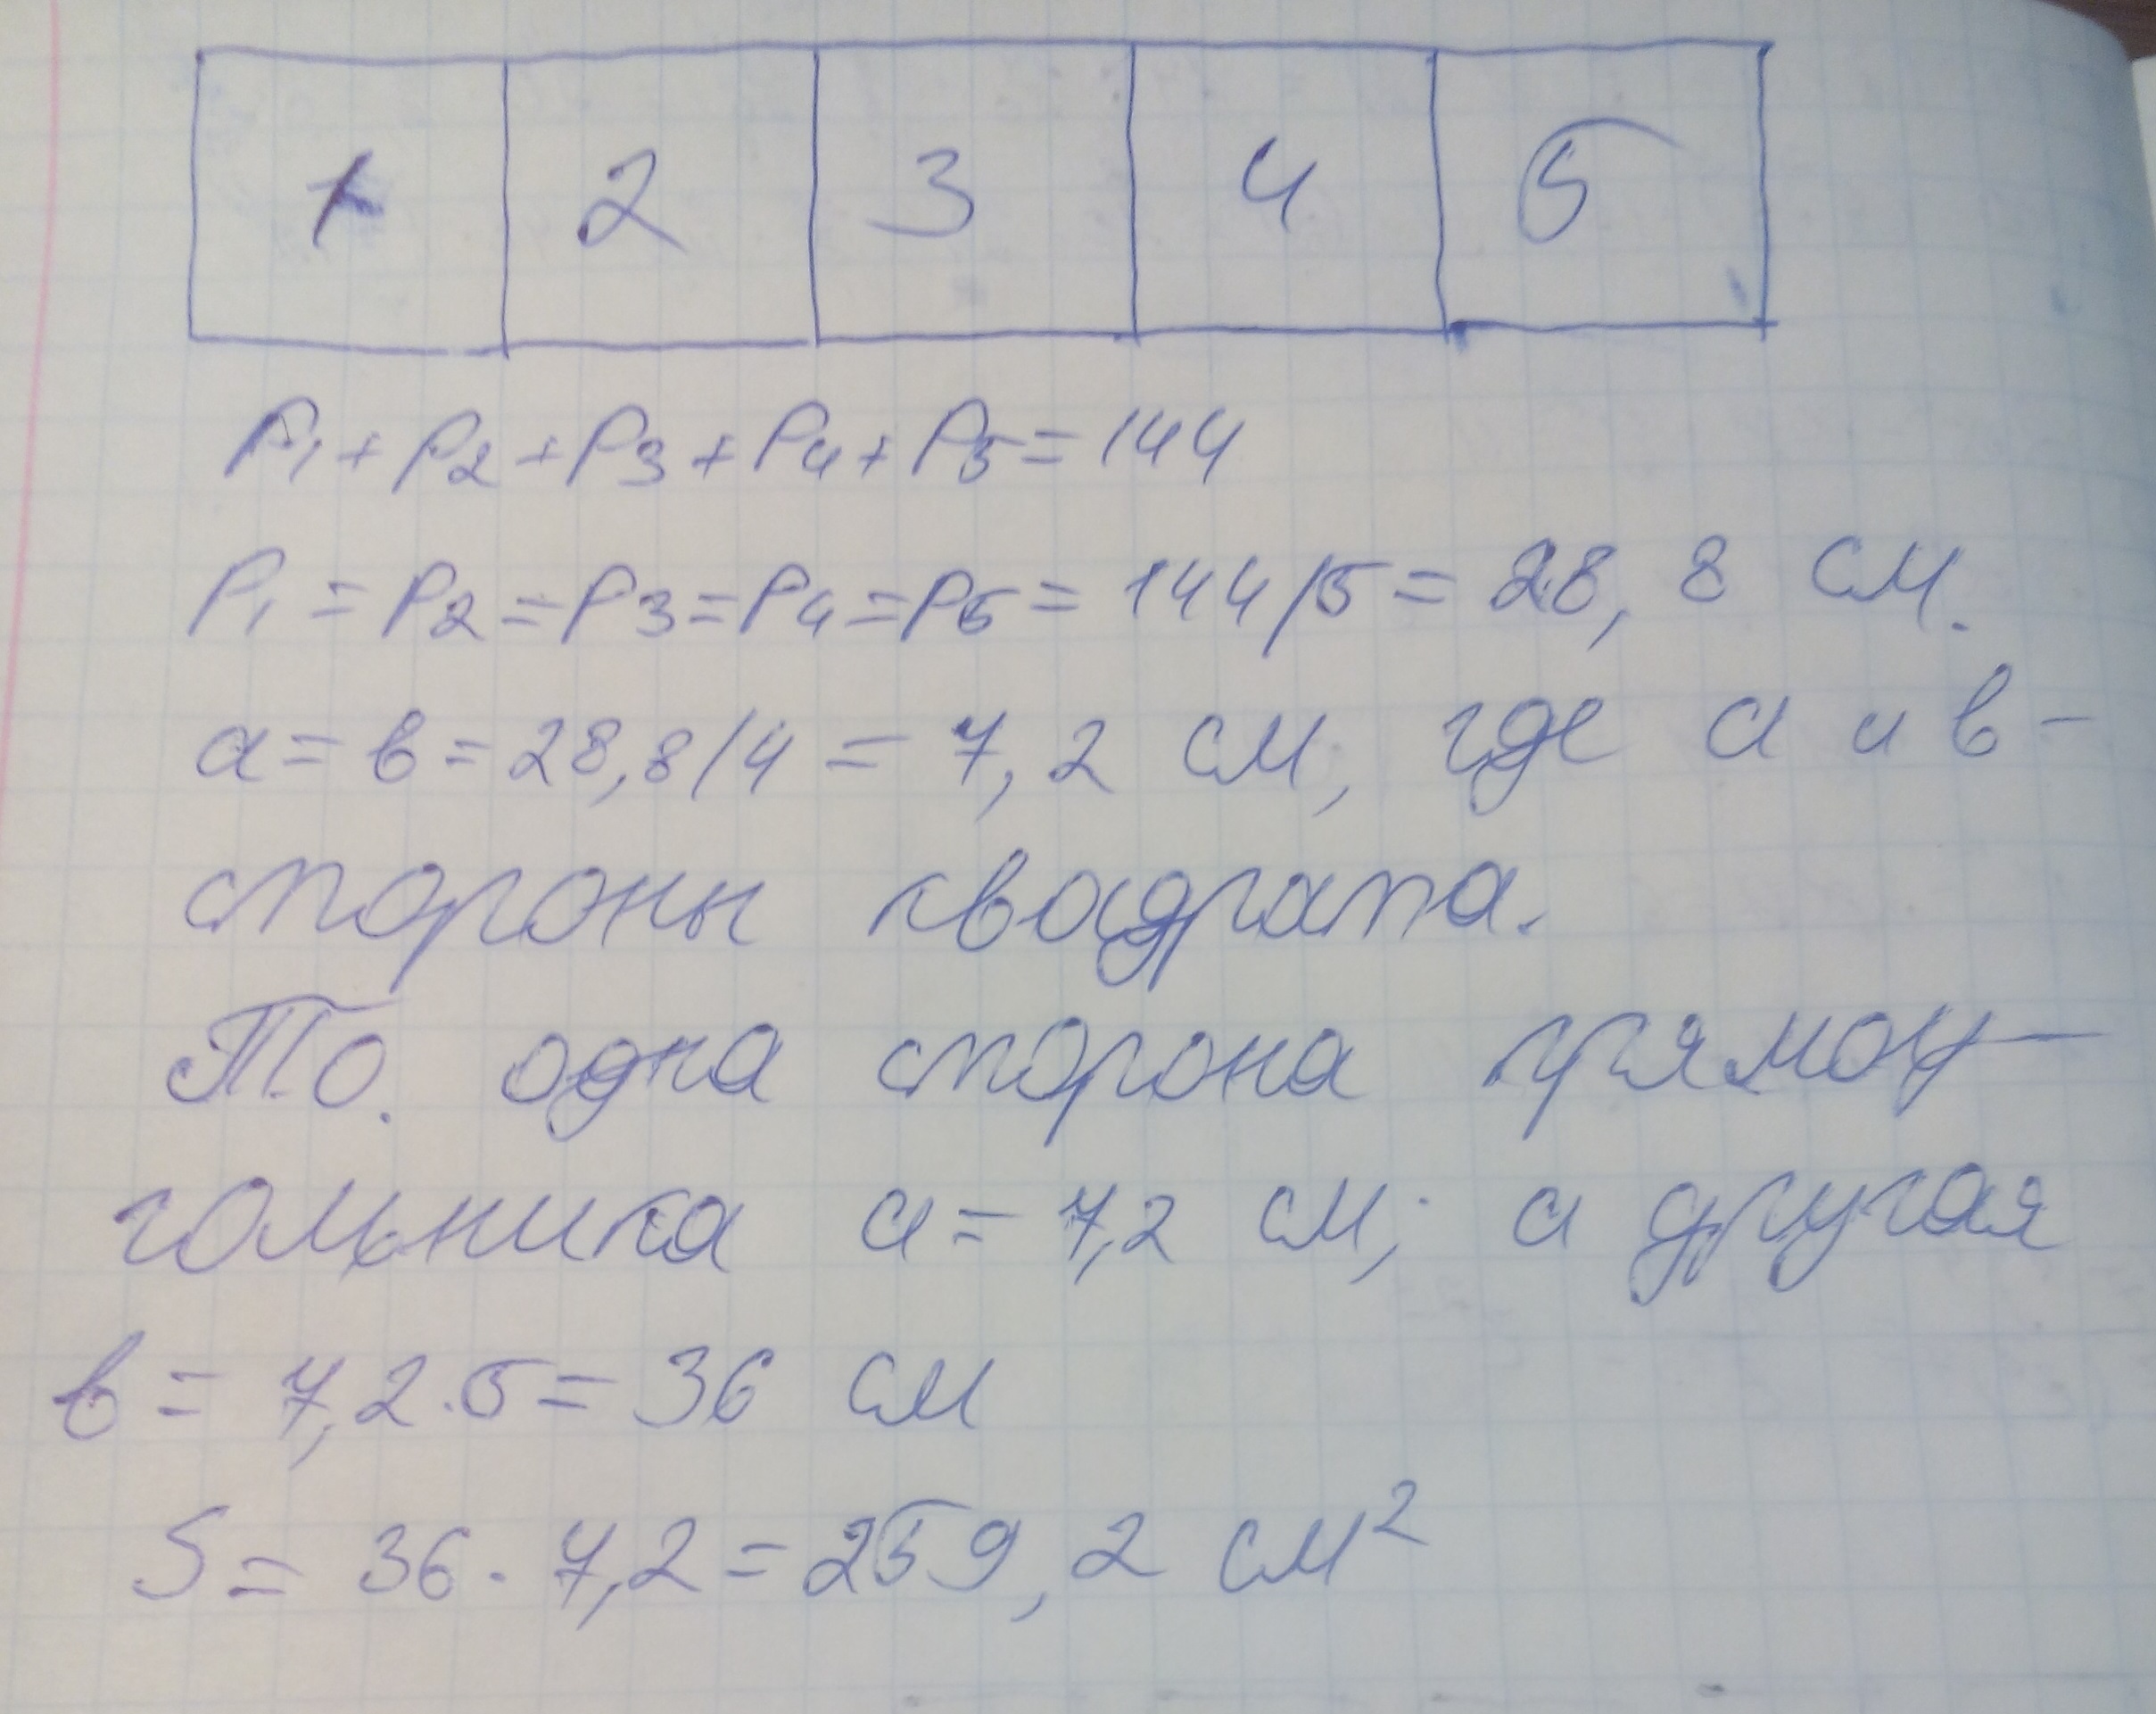 1 2 3 4 5
P₁ + P₂ + P₃ + P₄ + P₅ = 144
P₁ = P₂ = P₃ = P₄ = P₅ = 144/5 = 28,8 см.
а = в = 28,8/4 = 7,2 см, где а и в -
стороны квадрата.
Т.О. одна сторона прямоу-
гольника а = 7,2 см; а другая
в = 7,2 · 5 = 36 см
S = 36 · 7,2 = 259,2 см²